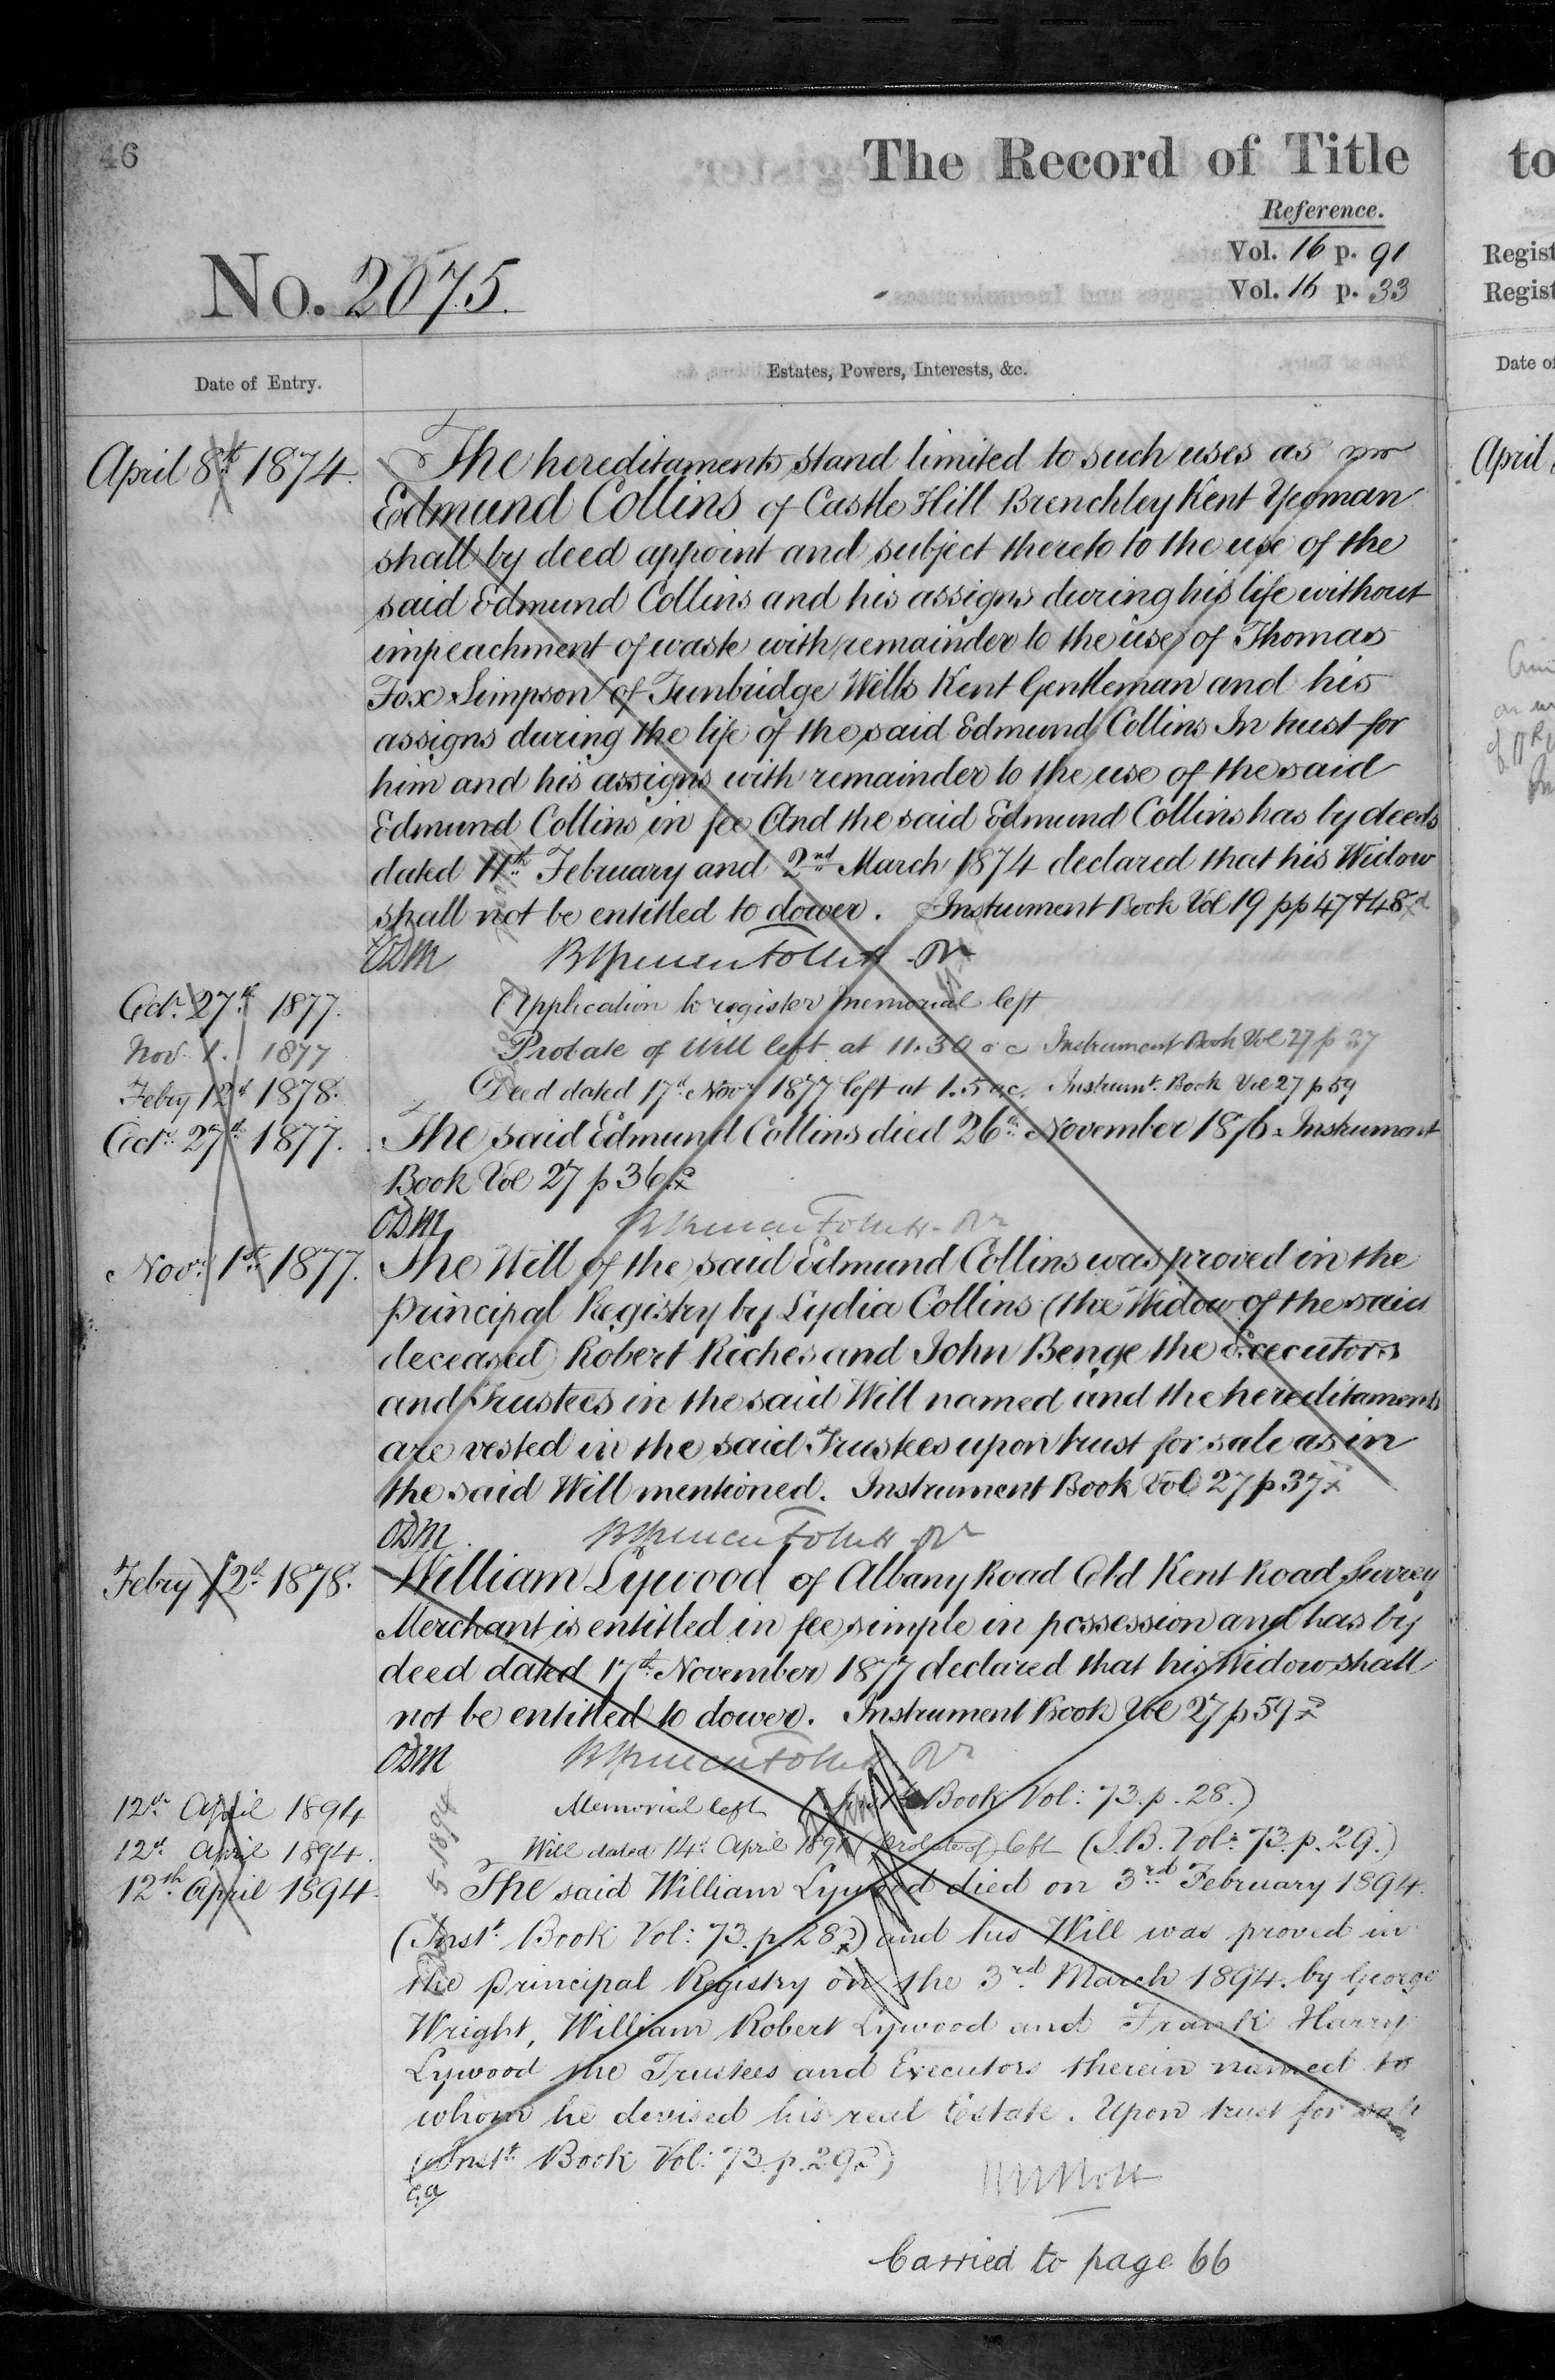 46
The Record of Title
Reference.
Vol. 16 p. 91
Vol. 16 p. 33
No. 2075.
Date of Entry.
Estates, Powers, Interests, &c.
April 8th 1874. The hereditaments stand limited to such uses as
Edmund Collins of Castle Hill Brenchley Kent Yeoman
shall by deed appoint and subject thereto to the use of the
said Edmund Collins and his assigns during his life without
impeachment of waste with remainder to the use of Thomas
Fox Simpson of Tunbridge Wells Kent Gentleman and his
assigns during the life of the said Edmund Collins In trust for
him and his assigns with remainder to the use of the said
Edmund Collins in fee And the said Edmund Collins has by deeds
dated 11th February and 2nd March 1874 declared that his Widow
shall not be entitled to dower. Instrument Book Vol 19 pp 47 & 48
ODM
Octr. 27th 1877. Application to register memorial left
Nov. 1. 1877 Probate of Will left at 11.30 o c Instrument Book Vol 27 p 37
Febry 12th 1878. Deed dated 17th Novr 1877 left at 1.5 o c. Instrumt. Book Vol 27 p 59
Octr. 27th 1877. The said Edmund Collins died 26th November 1876. Instrument
Book Vol 27 p 36
ODM
Novr. 1st 1877. The Will of the said Edmund Collins was proved in the
principal Registry by Lydia Collins (the Widow of the said
deceased) Robert Riches and John Benge the Executors
and Trustees in the said Will named and the hereditaments
are vested in the said Trustees upon trust for sale as in
the said Will mentioned. Instrument Book Vol 27 p 37
ODM
Febry 12th 1878. William Lywood of Albany Road Old Kent Road Surrey
Merchant is entitled in fee simple in possession and has by
deed dated 17th November 1877 declared that his Widow shall
not be entitled to dower. Instrument Book Vol 27 p 59
ODM
12th April 1894 Memorial left (Inst. Book Vol: 73. p. 28.)
12th April 1894. Will dated 14th April (Probate of) left (I.B. Vol: 73. p. 29.)
12th April 1894. The said William Lywood died on 3rd February 1894.
(Inst. Book Vol: 73. p. 28) and his Will was proved in
the principal Registry on the 3rd March 1894. by George
Wright, William Robert Lywood and Frank Harry
Lywood the Trustees and Executors therein named to
whom he devised his real Estate. Upon trust for sale
(Inst. Book Vol: 73. p. 29)
Carried to page 66
to
Regist
Regist
Date of
April